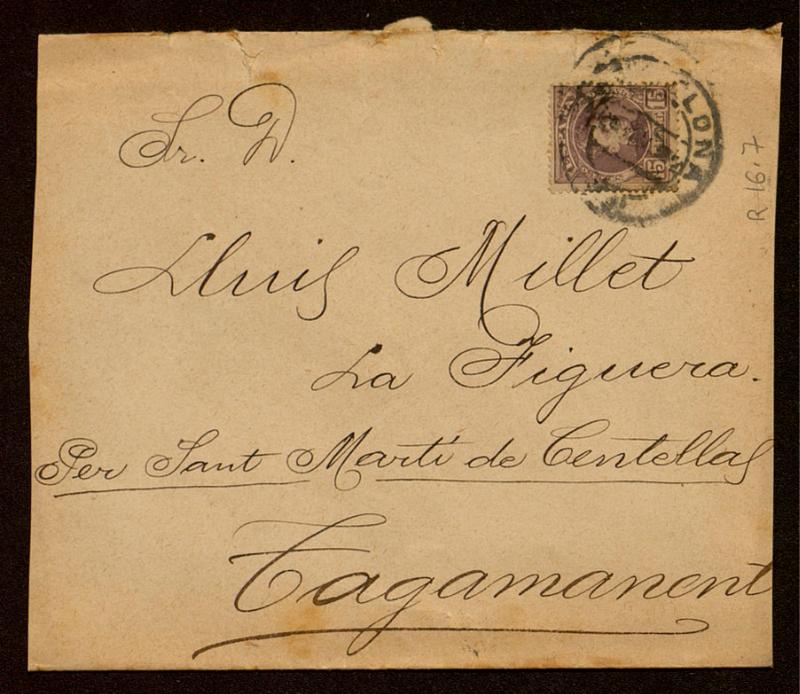 Sr. D.
Lluis Millet
La Figuera.
Per Sant Martí de Centellas
Tagamanent
15
15
LONA
R 16.7